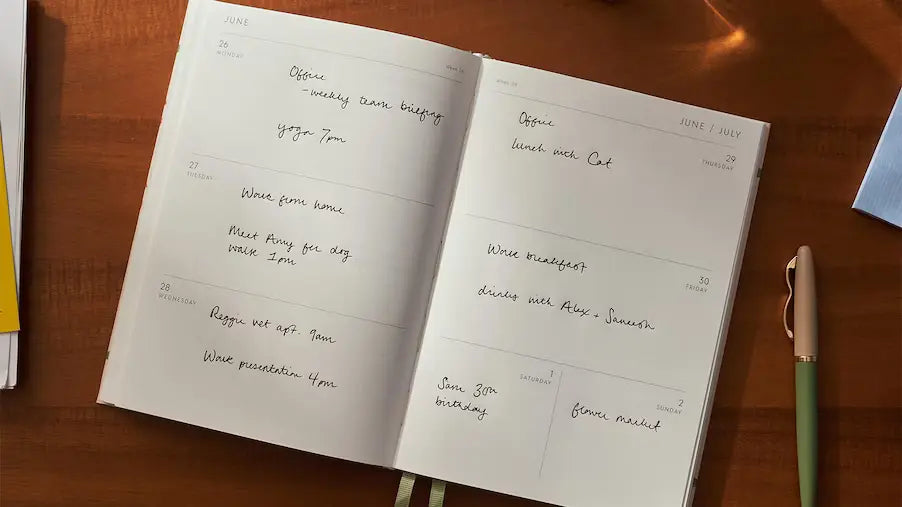 JUNE
26
MONDAY
Office
-weekly team briefing
yoga 7pm
27
TUESDAY
Work from home
Meet Amy for dog
walk 1pm
28
WEDNESDAY
Reggie vet apt. 9am
Work presentation 4pm
JUNE / JULY
29
THURSDAY
Office
lunch with Cat
30
FRIDAY
Work breakfast
drinks with Alex +
1
SATURDAY
Sam 30th
birthday
2
SUNDAY
flower market